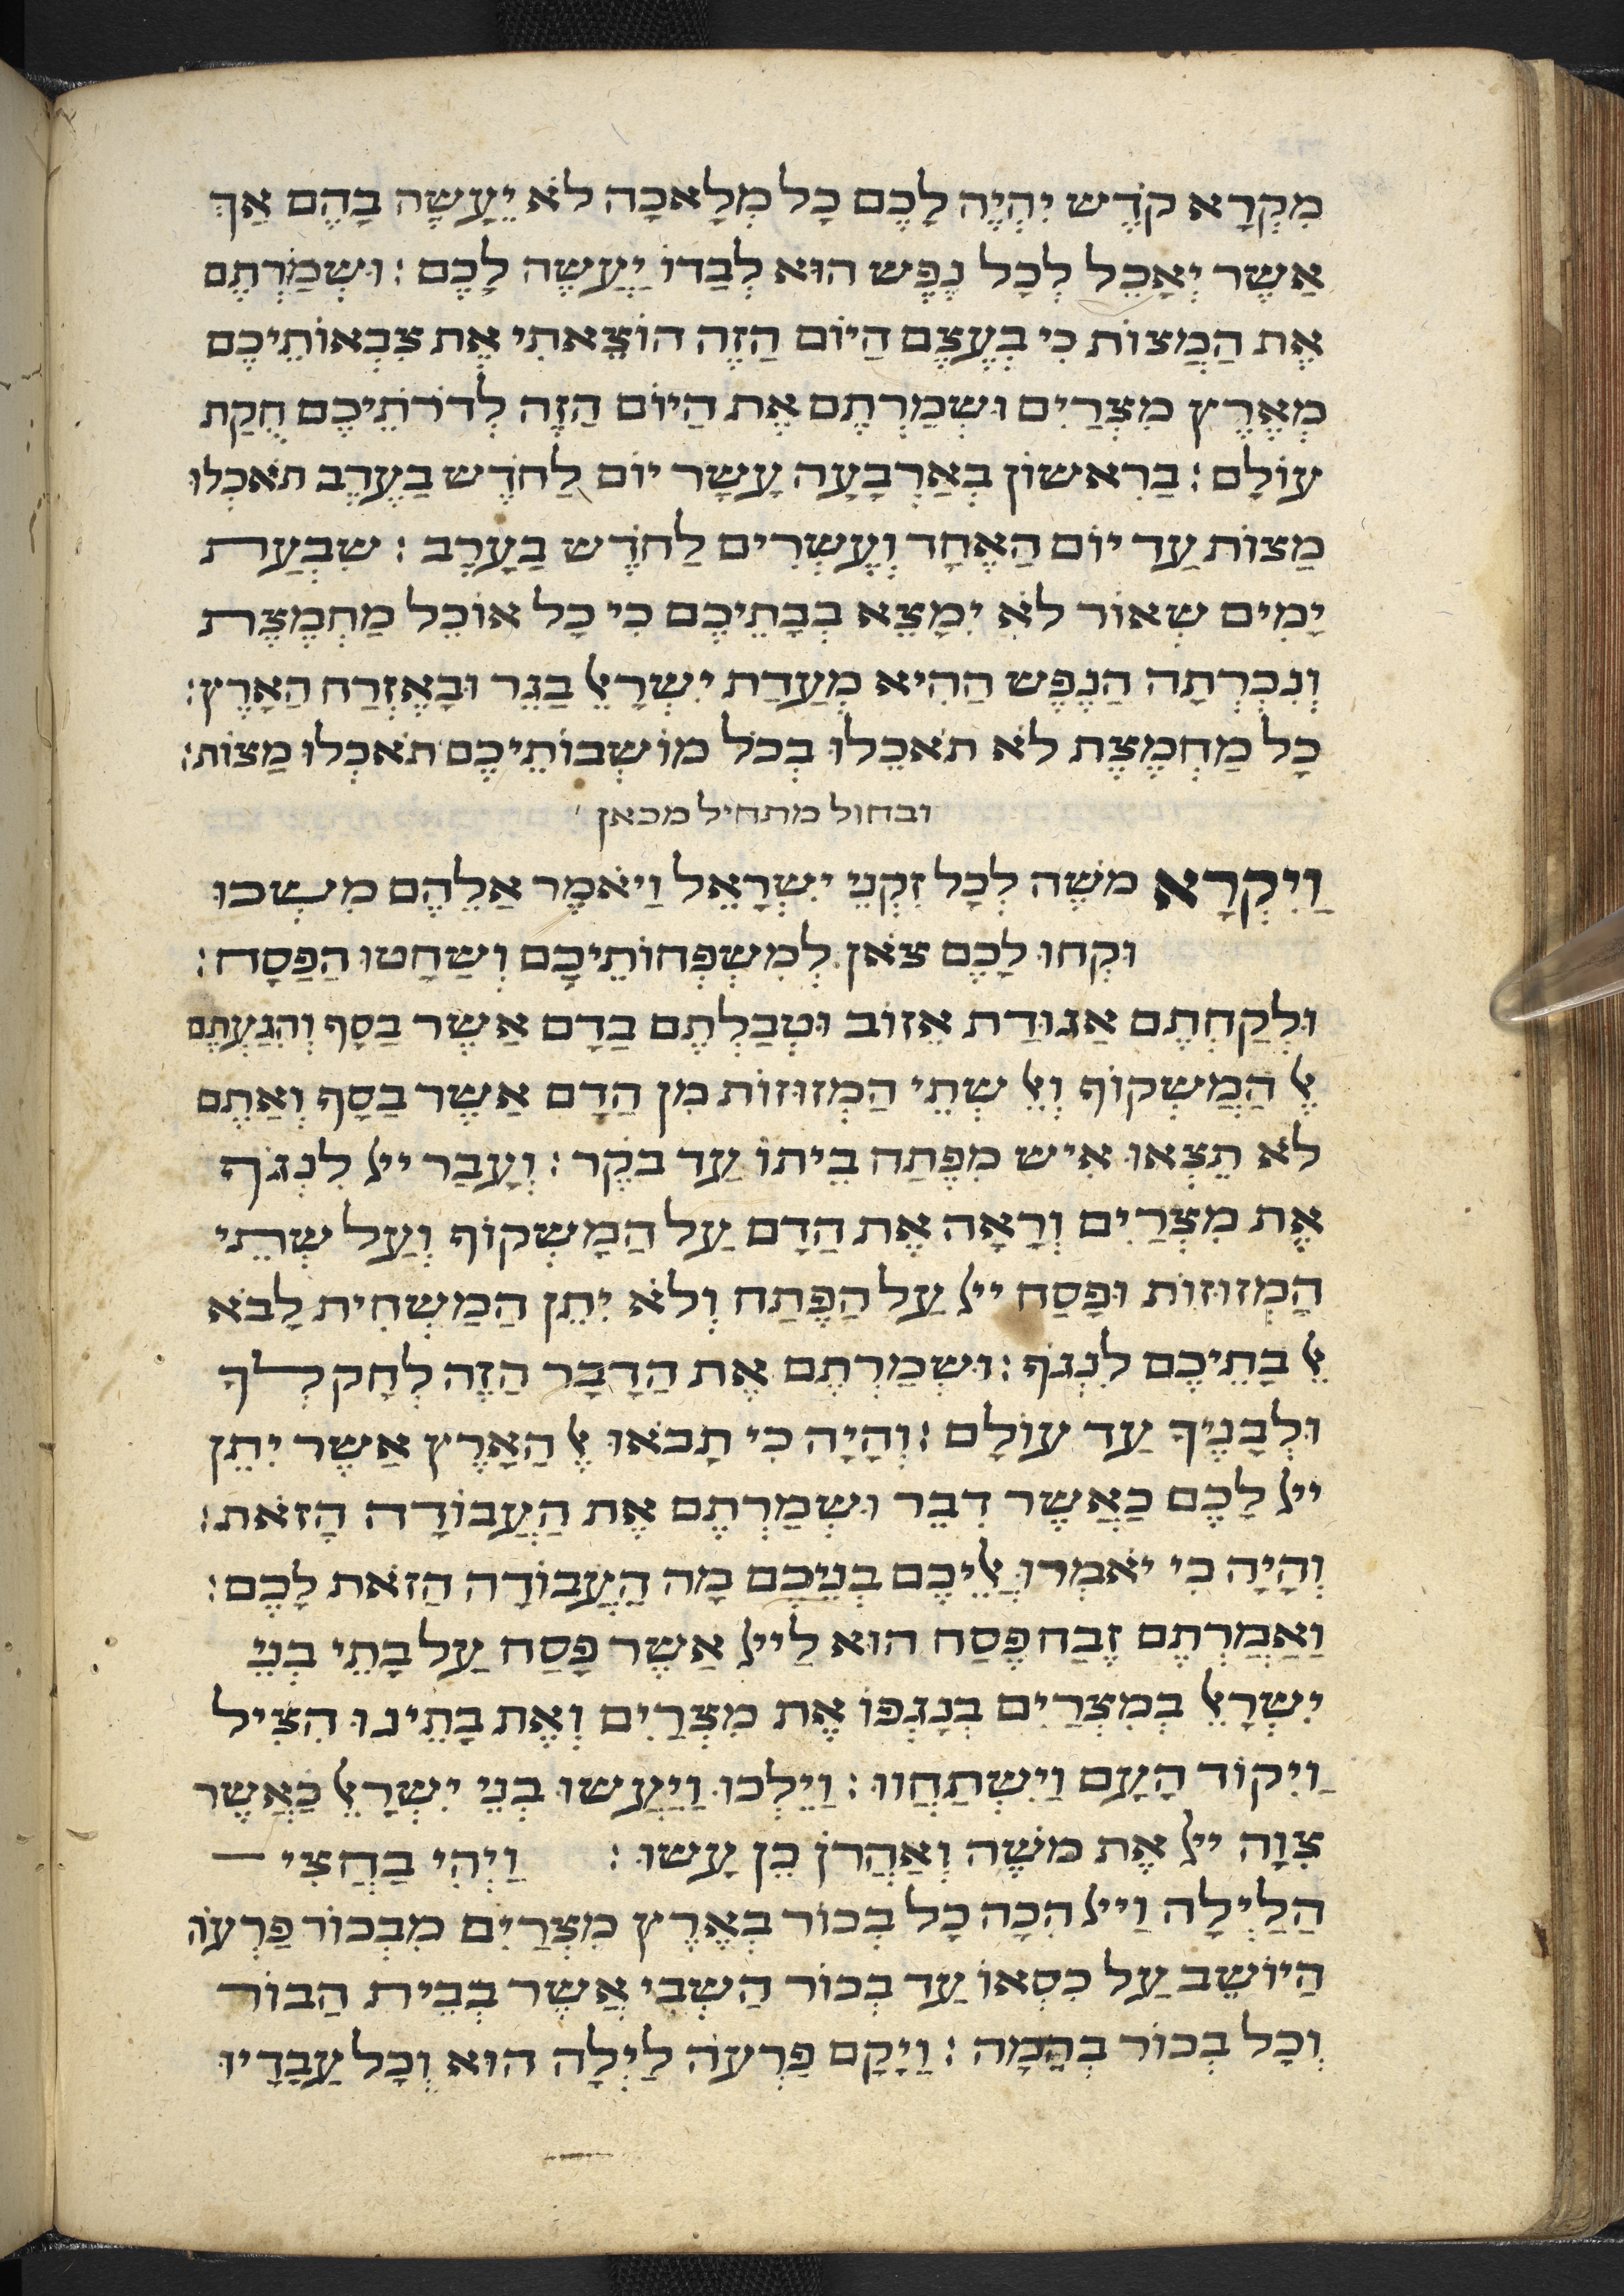 מִקְרָא קֹדֶש יִהְיֶה לָכֶם כָל מְלָאכָה לֹא יֵעָשֶה בָהֶם אַךְ
אֲשֶר יֵאָכֵל לְכָל נֶפֶש הוּא לְבַדוֹ יֵעָשֶה לָכֶם : וּשְמַרְתֶם
אֶת הַמַצוֹת כִי בְעֶצֶם הַיוֹם הַזֶה הוֹצֵאתִי אֶת צִבְאוֹתֵיכֶם
מֵאֶרֶץ מִצְרַיִם וּשְמַרְתֶם אֶת הַיוֹם הַזֶה לְדֹרֹתֵיכֶם חֻקַת
עוֹלָם : בָרִאשוֹן בְאַרְבָעָה עָשָר יוֹם לַחֹדֶש בָעֶרֶב תֹאכְלוּ
מַצוֹת עַד יוֹם הָאֶחָד וְעֶשְרִים לַחֹדֶש בָעָרֶב : שִבְעַת
יָמִים שְאוֹר לֹא יִמָצֵא בְבָתֵיכֶם כִי כָל אוֹכֵל מַחְמֶצֶת
וְנִכְרְתָה הַנֶפֶש הַהִיא מֵעֲדַת יִשְרָאֵל בַגֵר וּבְאֶזְרַח הָאָרֶץ :
כָל מַחְמֶצֶת לֹא תֹאכֵלוּ בְכֹל מוֹשְבוֹתֵיכֶם תֹאכְלוּ מַצוֹת :
ובחול מתחיל מכאן
וַיִקְרָא מֹשֶה לְכָל זִקְנֵי יִשְרָאֵל וַיֹאמֶר אֲלֵהֶם מִשְכוּ
וּקְחוּ לָכֶם צֹאן לְמִשְפְחוֹתֵיכֶם וְשַחֲטוּ הַפָסַח :
וּלְקַחְתֶם אֲגוּדַת אֵזוֹב וּטְבַלְתֶם בַדָם אֲשֶר בַסַף וְהִגַעְתֶם
אֶל הַמַשְקוֹף וְאֶל שְתֵי הַמְזוּזוֹת מִן הַדָם אֲשֶר בַסָף וְאַתֶם
לֹא תֵצְאוּ אִיש מִפֶתַח בֵיתוֹ עַד בֹקֶר : וְעָבַר ייל לִנְגֹף
אֶת מִצְרַיִם וְרָאָה אֶת הַדָם עַל הַמַשְקוֹף וְעַל שְתֵי
הַמְזוּזוֹת וּפָסַח ייל עַל הַפֶתַח וְלֹא יִתֵן הַמַשְחִית לָבֹא
אֶל בָתֵיכֶם לִנְגֹף : וּשְמַרְתֶם אֶת הַדָבָר הַזֶה לְחָק לְךָ
וּלְבָנֶיךָ עַד עוֹלָם : וְהָיָה כִי תָבֹאוּ אֶל הָאָרֶץ אֲשֶר יִתֵן
ייל לָכֶם כַאֲשֶר דִבֵר וּשְמַרְתֶם אֶת הָעֲבוֹדָה הַזֹאת :
וְהָיָה כִי יֹאמְרוּ אֲלֵיכֶם בְנֵיכֶם מָה הָעֲבוֹדָה הַזֹאת לָכֶם :
וַאֲמַרְתֶם זֶבַח פֶסַח הוּא לַייל אֲשֶר פָסַח עַל בָתֵי בְנֵי
יִשְרָאֵל בְמִצְרַיִם בְנָגְפוֹ אֶת מִצְרַיִם וְאֶת בָתֵינוּ הִצִיל
וַיִקוֹד הָעָם וַיִשְתַחֲווּ : וַיֵלְכוּ וַיַעֲשוּ בְנֵי יִשְרָאֵל כַאֲשֶר
צִוָה ייל אֶת מֹשֶה וְאַהֲרֹן כֵן עָשוּ : וַיְהִי בַחֲצִי
הַלַיְלָה וַייל הִכָה כָל בְכוֹר בְאֶרֶץ מִצְרַיִם מִבְכוֹר פַרְעֹה
הַיוֹשֵב עַל כִסְאוֹ עַד בְכוֹר הַשְבִי אֲשֶר בְבֵית הַבוֹר
וְכָל בְכוֹר בְהֵמָה : וַיָקָם פַרְעֹה לַיְלָה הוּא וְכָל עֲבָדָיו